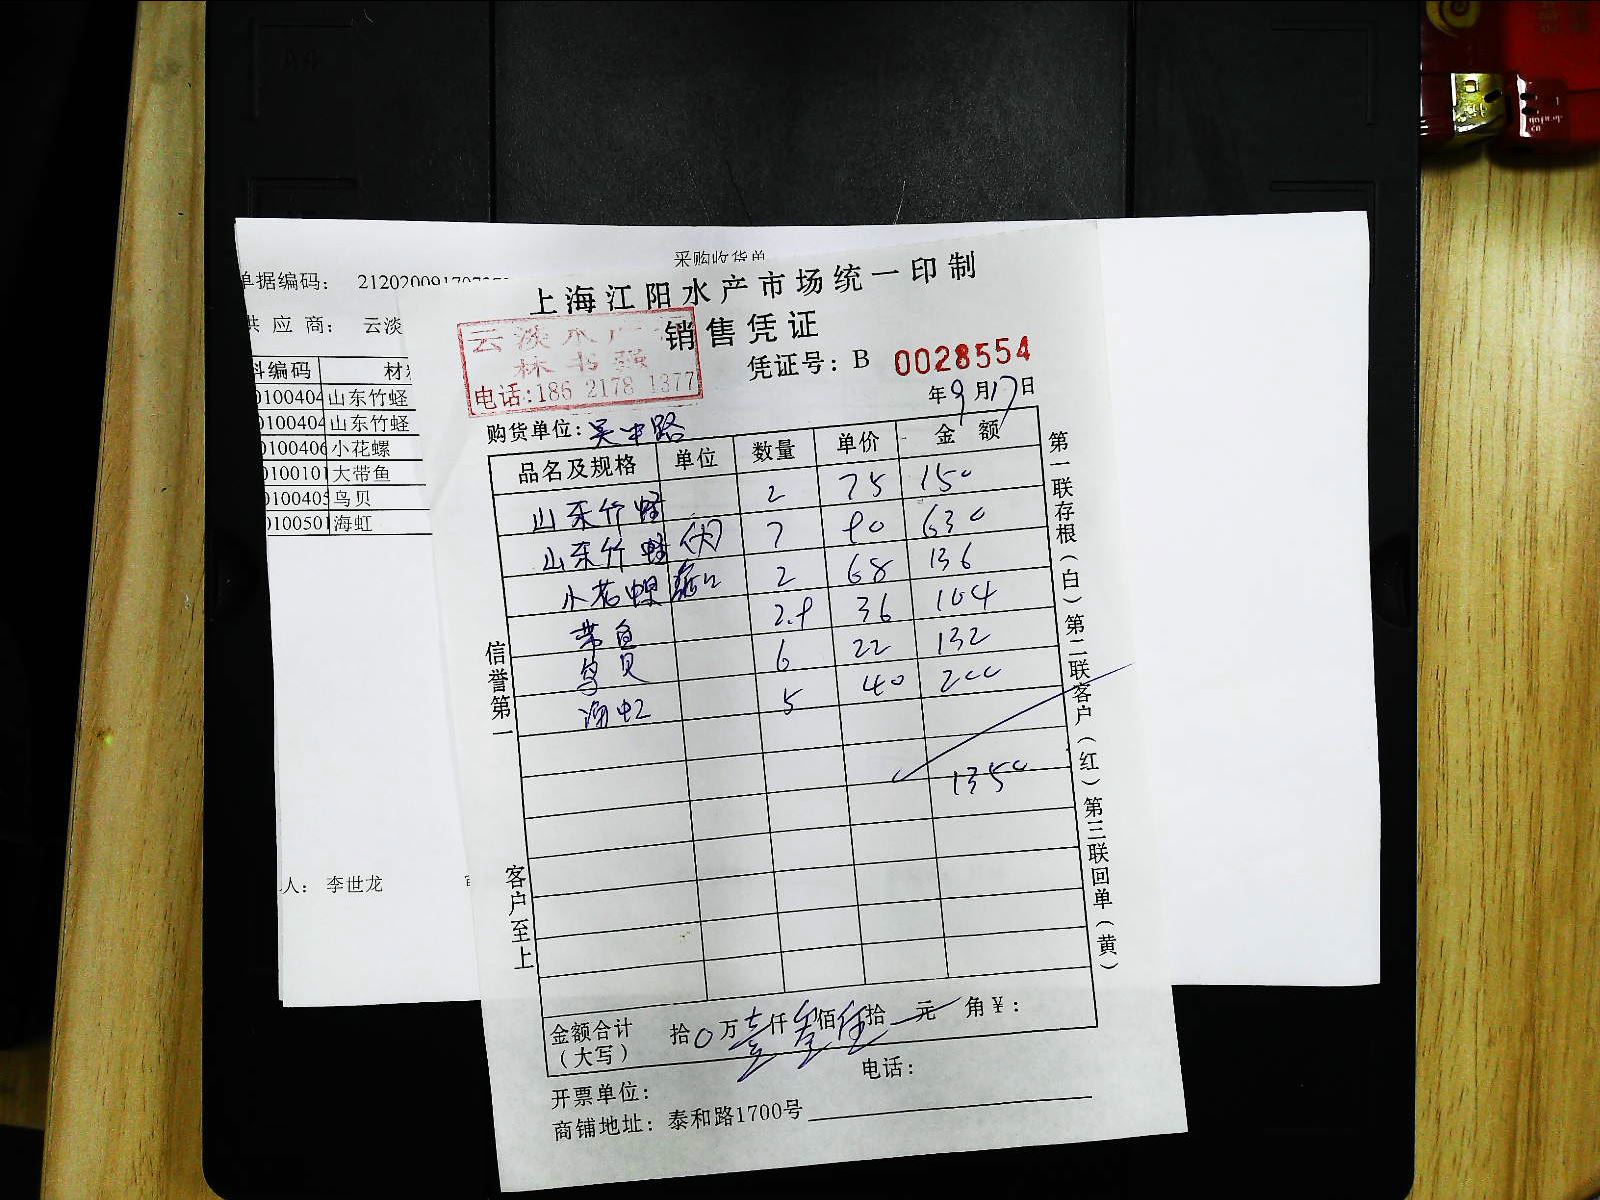 采购收货单
单据编码： 212020091707
供 应 商： 云淡
料编码 材
0100404 山东竹蛏
0100404 山东竹蛏
0100406 小花螺
0100101 大带鱼
0100405 乌贝
0100501 海虹
人： 李世龙
上海江阳水产市场统一印制
销售凭证
云淡水产
林书强
电话:186 2178 1377
凭证号：B 0028554
年9月17日
购货单位:吴中路
品名及规格 单位 数量 单价 金额
山东竹蛏 2 75 150
山东竹蛏 (大) 7 90 630
小花螺 2 68 136
带鱼 2.9 36 104
乌贝 6 22 132
海虹 5 40 200
1350
信誉第一
客户至上
第一联存根（白）第二联客户（红）第三联回单（黄）
金额合计（大写） 拾0万壹仟叁佰伍拾元 角￥:
开票单位: 电话:
商铺地址: 泰和路1700号